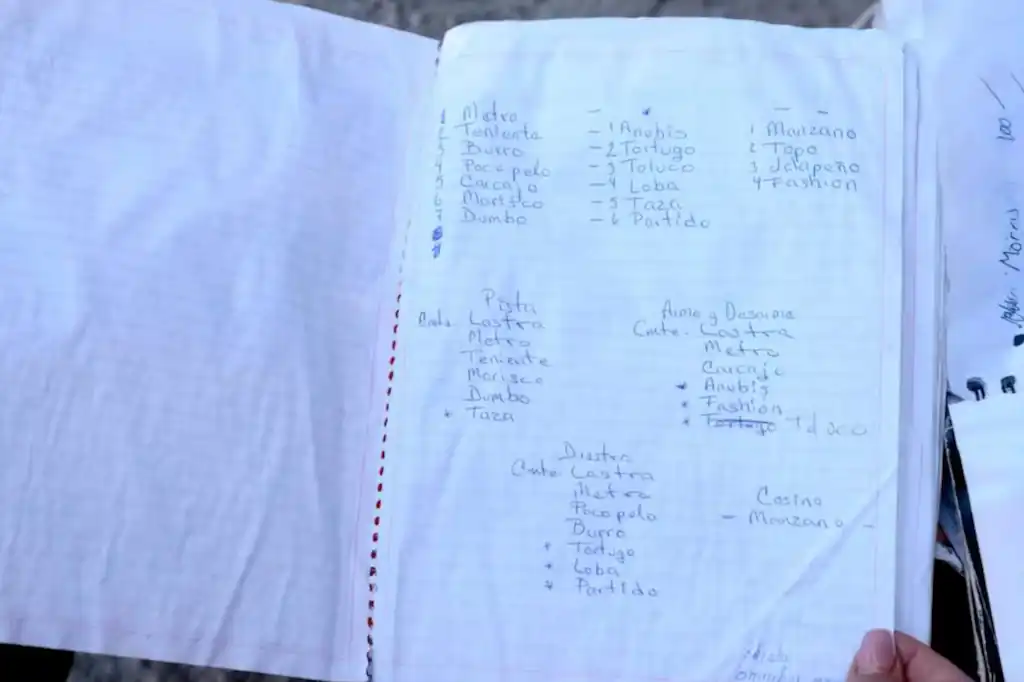 1 Metro
2 Teniente
3 Burro
4 Pocopelo
5 Carcajo
6 Morisco
7 Dumbo
- *
- 1 Anubis
- 2 Tortugo
- 3 Toluco
- 4 Loba
- 5 Taza
- 6 Partido
- -
1 Manzano
2 Topo
3 Jalapeño
4 Fashion
Pista
Cmte. Lastra
Metro
Teniente
Morisco
Dumbo
* Taza
Arme y Desarme
Cmte. Lastra
Metro
Carcajo
* Anubis
* Fashion
* Tortugo Toluco
Diestro
Cmte Lastra
Metro
Pocopelo
Burro
* Tortugo
* Loba
* Partido
Cosina
- Manzano -
100